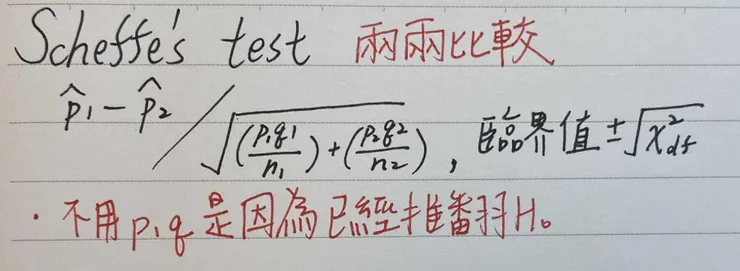 Scheffe's test 兩兩比較
p̂₁ - p̂₂ / √(p₁q₁/n₁) + (p₂q₂/n₂) , 臨界值 ± √χ²df
· 不用p,q是因為已經推翻H₀